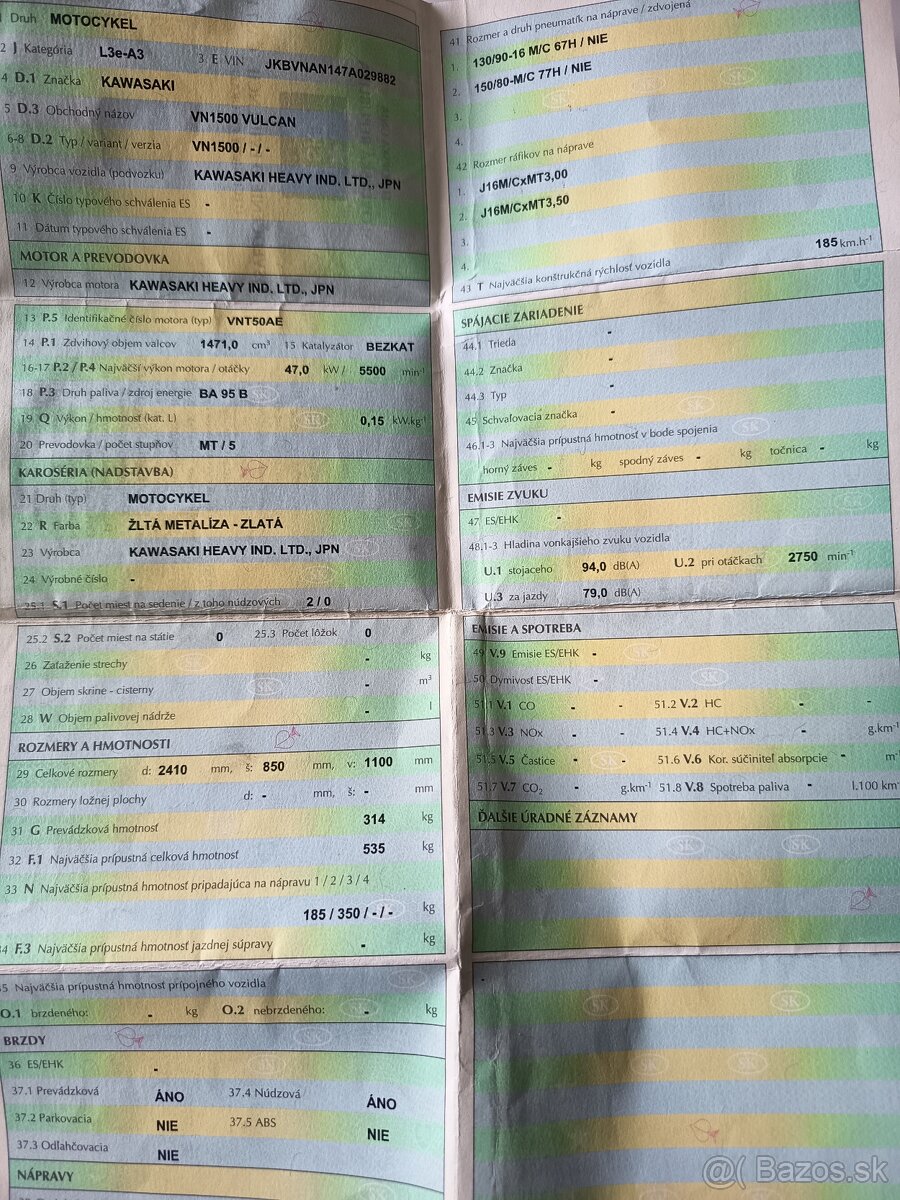 1 Druh MOTOCYKEL
2 J Kategória L3e-A3 3 E VIN JKBVNAN147A029882
4 D.1 Značka KAWASAKI
5 D.3 Obchodný názov VN1500 VULCAN
6-8 D.2 Typ / variant / verzia VN1500 / - / -
9 Výrobca vozidla (podvozku) KAWASAKI HEAVY IND. LTD., JPN
10 K Číslo typového schválenia ES -
11 Dátum typového schválenia ES -
MOTOR A PREVODOVKA
12 Výrobca motora KAWASAKI HEAVY IND. LTD., JPN
13 P.5 Identifikačné číslo motora (typ) VNT50AE
14 P.1 Zdvihový objem valcov 1471,0 cm³ 15 Katalyzátor BEZKAT
16-17 P.2 / P.4 Najväčší výkon motora / otáčky 47,0 kW / 5500 min⁻¹
18 P.3 Druh paliva / zdroj energie BA 95 B
19 Q Výkon / hmotnosť (kat. L) 0,15 kW.kg⁻¹
20 Prevodovka / počet stupňov MT / 5
KAROSÉRIA (NADSTAVBA)
21 Druh (typ) MOTOCYKEL
22 R Farba ŽLTÁ METALÍZA - ZLATÁ
23 Výrobca KAWASAKI HEAVY IND. LTD., JPN
24 Výrobné číslo -
25.1 S.1 Počet miest na sedenie / z toho núdzových 2 / 0
25.2 S.2 Počet miest na státie 0 25.3 Počet lôžok 0
26 Zaťaženie strechy - kg
27 Objem skrine - cisterny - m³
28 W Objem palivovej nádrže - l
ROZMERY A HMOTNOSTI
29 Celkové rozmery d: 2410 mm, š: 850 mm, v: 1100 mm
30 Rozmery ložnej plochy d: - mm, š: - mm
31 G Prevádzková hmotnosť 314 kg
32 F.1 Najväčšia prípustná celková hmotnosť 535 kg
33 N Najväčšia prípustná hmotnosť pripadajúca na nápravu 1 / 2 / 3 / 4
185 / 350 / - / - kg
34 F.3 Najväčšia prípustná hmotnosť jazdnej súpravy - kg
35 Najväčšia prípustná hmotnosť prípojného vozidla
O.1 brzdeného: - kg O.2 nebrzdeného: - kg
BRZDY
36 ES/EHK -
37.1 Prevádzková ÁNO 37.4 Núdzová ÁNO
37.2 Parkovacia NIE 37.5 ABS NIE
37.3 Odľahčovacia NIE
NÁPRAVY
41 Rozmer a druh pneumatík na náprave / zdvojená
1. 130/90-16 M/C 67H / NIE
2. 150/80-M/C 77H / NIE
3.
4.
42 Rozmer ráfikov na náprave
1. J16M/CxMT3,00
2. J16M/CxMT3,50
3.
4.
43 T Najväčšia konštrukčná rýchlosť vozidla 185 km.h⁻¹
SPÁJACIE ZARIADENIE
44.1 Trieda -
44.2 Značka -
44.3 Typ -
45 Schvaľovacia značka -
46.1-3 Najväčšia prípustná hmotnosť v bode spojenia
horný záves - kg spodný záves - kg točnica - kg
EMISIE ZVUKU
47 ES/EHK -
48.1-3 Hladina vonkajšieho zvuku vozidla
U.1 stojaceho 94,0 dB(A) U.2 pri otáčkach 2750 min⁻¹
U.3 za jazdy 79,0 dB(A)
EMISIE A SPOTREBA
49 V.9 Emisie ES/EHK -
50 Dymivosť ES/EHK -
51.1 V.1 CO - - 51.2 V.2 HC -
51.3 V.3 NOx - - 51.4 V.4 HC+NOx - g.km⁻¹
51.5 V.5 Častice - - 51.6 V.6 Kor. súčiniteľ absorpcie - m⁻¹
51.7 V.7 CO₂ - g.km⁻¹ 51.8 V.8 Spotreba paliva - l.100 km⁻¹
ĎALŠIE ÚRADNÉ ZÁZNAMY
@( Bazos.sk